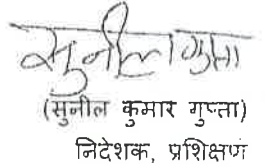 सुनील गुप्ता
(सुनील कुमार गुप्ता)
निदेशक, प्रशिक्षण